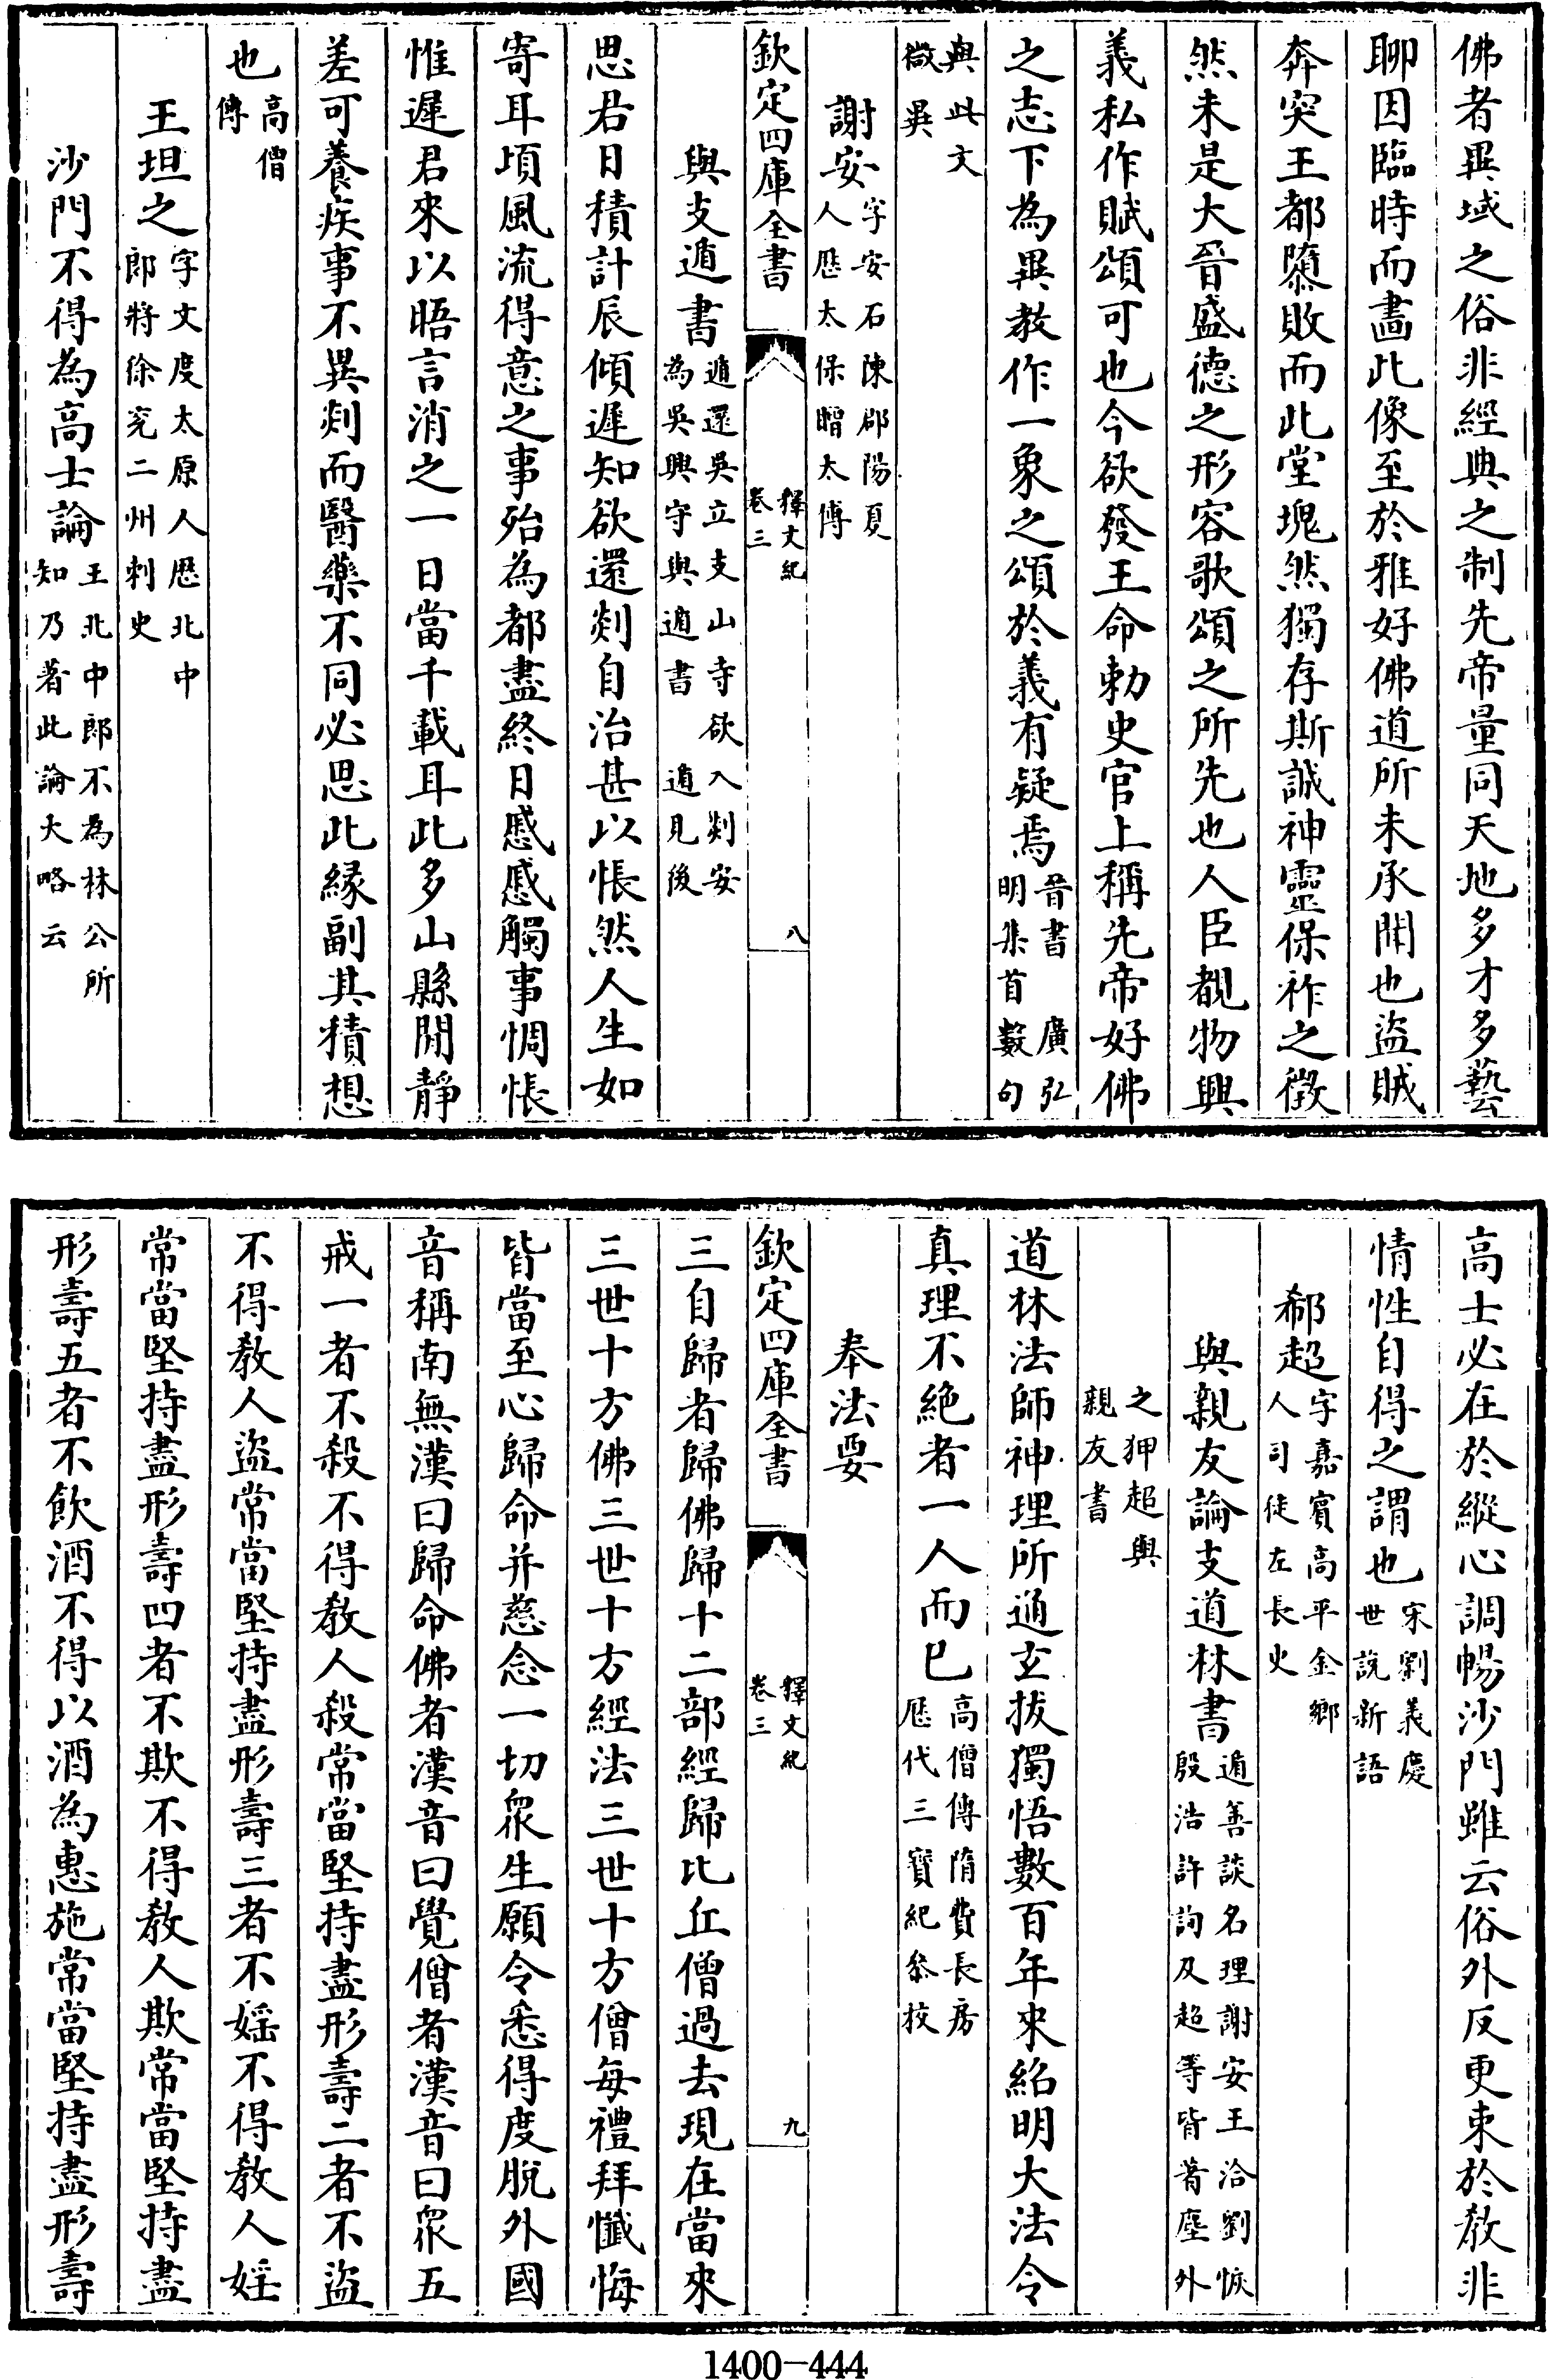 佛者異域之俗非經典之制先帝量同天地多才多藝
聊因臨時而畵此像至於雅好佛道所未承聞也盜賊
奔突王都隳敗而此堂塊然獨存斯誠神靈保祚之徵
然未是大晉盛德之形容歌頌之所先也人臣覩物興
義私作賦頌可也今欲發王命勅史官上稱先帝好佛
之志下為異教作一象之頌於義有疑焉晉書　廣弘
明集首數句
與此文
微異
謝安字安石陳郡陽夏
人歴太保贈太傅
欽定四庫全書
釋文紀
卷三
八
與支遁書遁還吳立支山寺欲入剡安
為吳興守與遁書　遁見後
思君日積計辰傾遲知欲還剡自治甚以悵然人生如
寄耳頃風流得意之事殆為都盡終日慼慼觸事惆悵
惟遲君來以晤言消之一日當千載耳此多山縣閒靜
差可養疾事不異剡而醫藥不同必思此緣副其積想
也高僧
傳
王坦之字文度太原人歴北中
郎將徐兖二州刺史
沙門不得為高士論王北中郎不為林公所
知乃著此論大略云
高士必在於縱心調暢沙門雖云俗外反更束於教非
情性自得之謂也宋劉義慶
世說新語
郗超字嘉賓高平金鄉
人司徒左長史
與親友論支道林書遁善談名理謝安王洽劉恢
殷浩許詢及超等皆著塵外
之狎超與
親友書
道林法師神理所通玄拔獨悟數百年來紹明大法令
真理不絶者一人而已高僧傳隋費長房
歴代三寳紀叅校
奉法要
欽定四庫全書
釋文紀
卷三
九
三自歸者歸佛歸十二部經歸比丘僧過去現在當來
三世十方佛三世十方經法三世十方僧每禮拜懺悔
皆當至心歸命并慈念一切衆生願令悉得度脫外國
音稱南無漢曰歸命佛者漢音曰覺僧者漢音曰衆五
戒一者不殺不得教人殺常當堅持盡形壽二者不盜
不得教人盜常當堅持盡形壽三者不婬不得教人婬
常當堅持盡形壽四者不欺不得教人欺常當堅持盡
形壽五者不飲酒不得以酒為惠施常當堅持盡形壽
1400-444